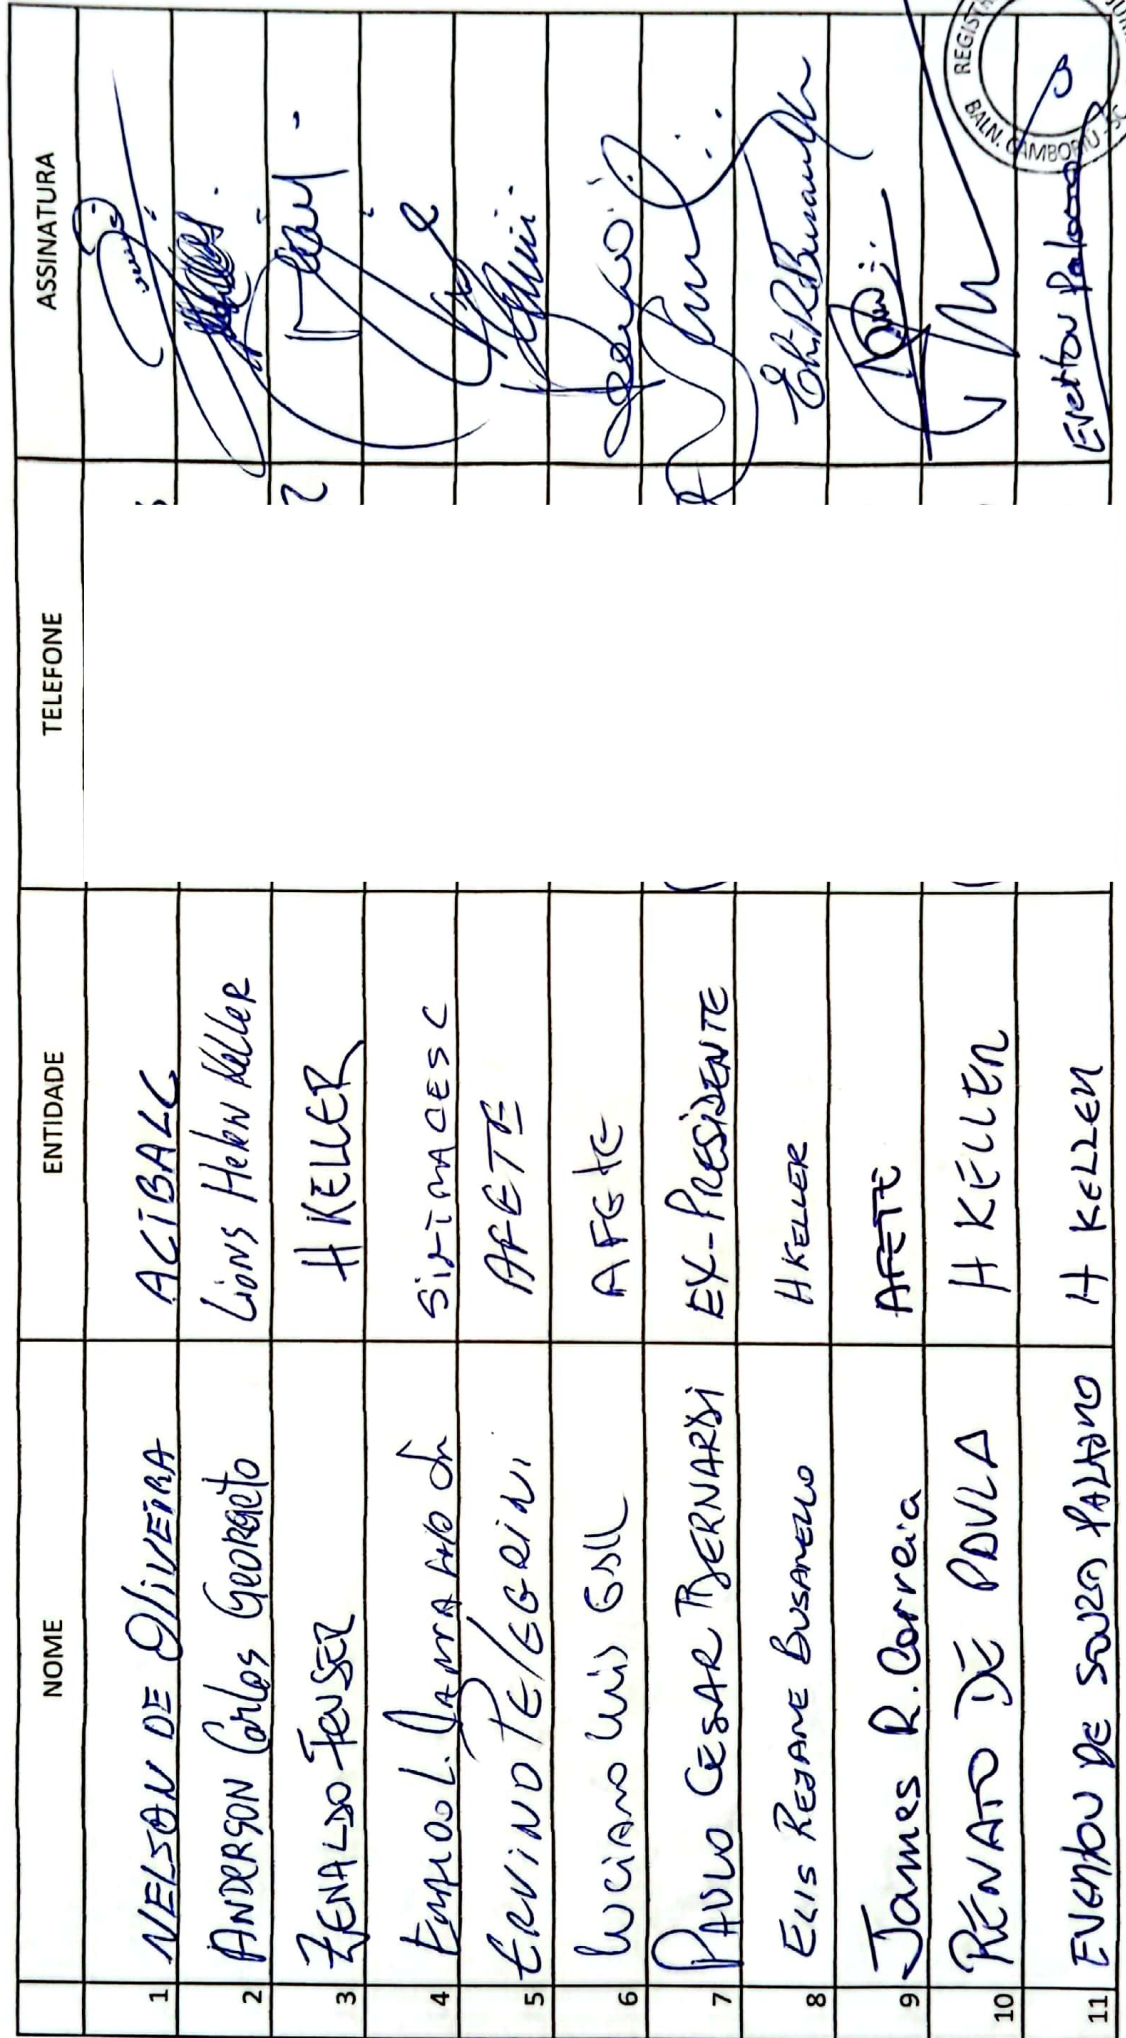 NOME ENTIDADE TELEFONE ASSINATURA
1 NELSON DE OLIVEIRA ACIBALC
2 ANDERSON Carlos GEORGETO Lions Helen Keller
3 ZENALDO FEUSER H KELLER
4 L. SINTRACESC
5 ERVINO PELEGRINI AFETE
6 LUCIANO LUIS GOLL AFETE
7 PAULO CESAR BERNARDI EX-PRESIDENTE
8 ELIS REJANE BUSANELLO H KELLER
9 James R. Correia AFETE
10 RENATO DE PAULA H KELLER
11 EVERTON DE SOUZA PALADINO H KELLER Everton
REGISTR
BALN. CAMBORIÚ - SC